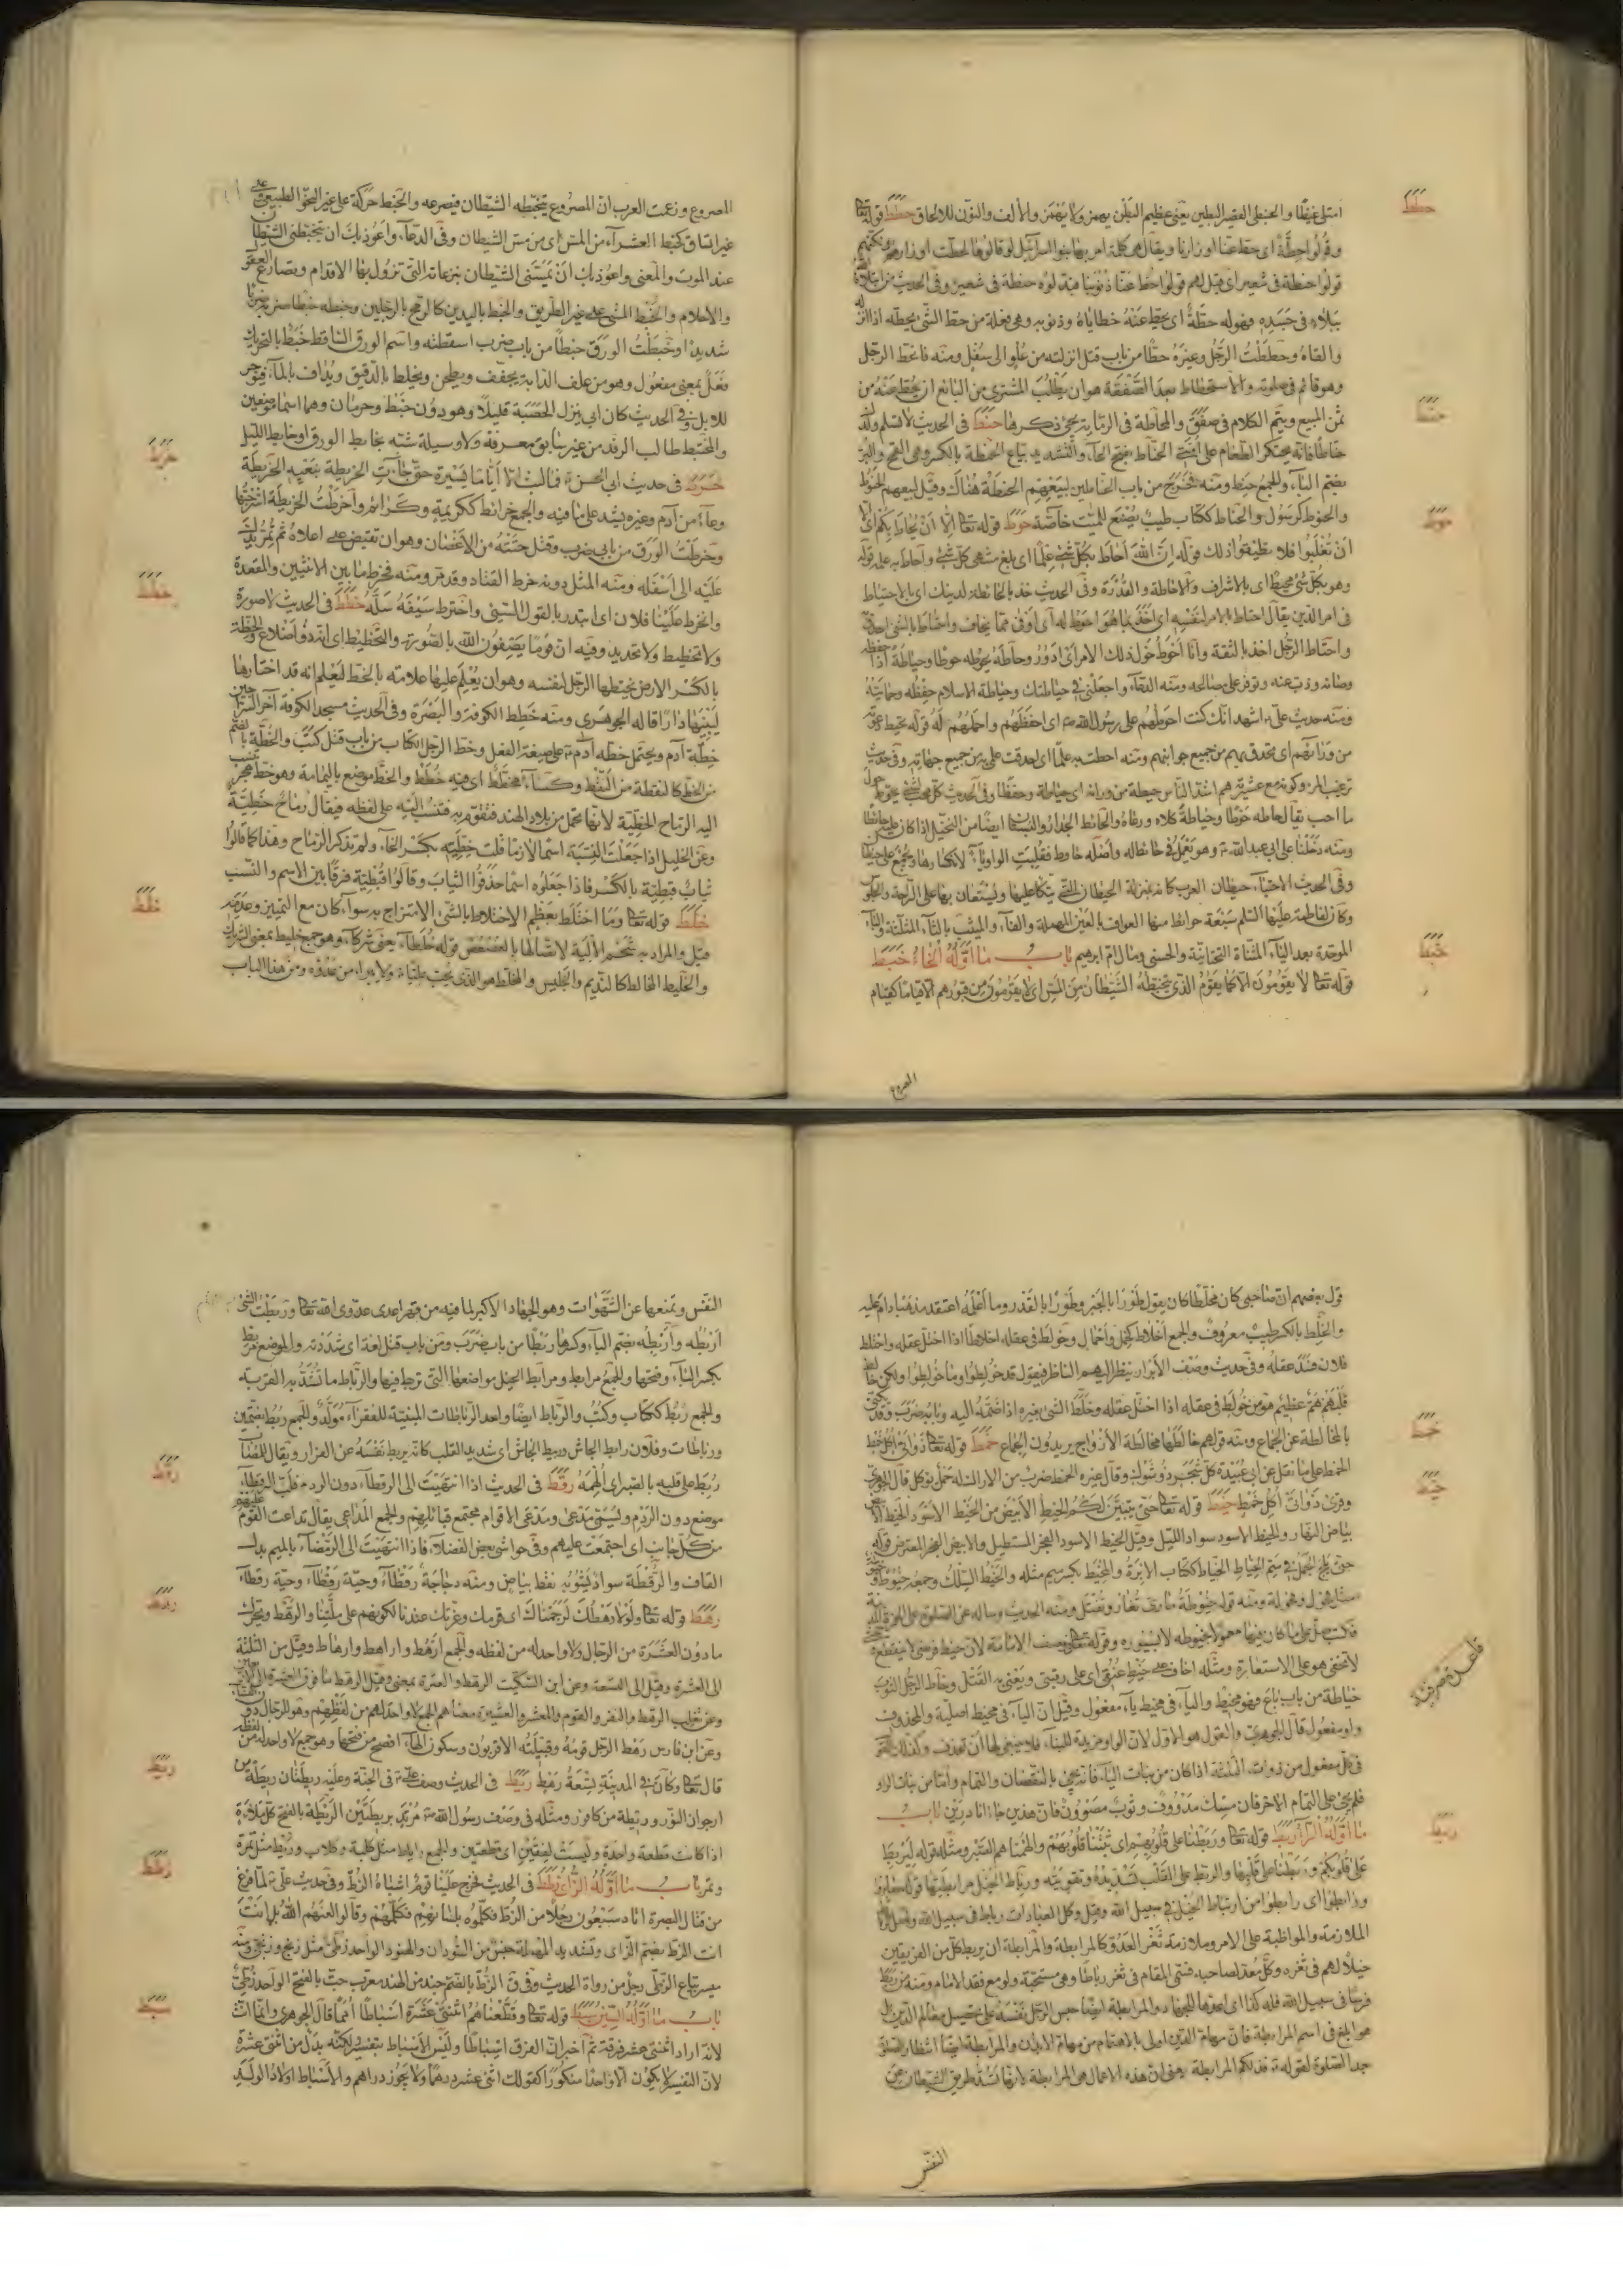 حطط
امتلی غیظا و الحنبطی القصیر البطین یعنی عظیم البطن یهمز ولا یهمز والالف والنون للالحاق حطط قوله تعا
وقولوا حطة ای حط عنا اوزارنا ویقال هی کلمة امر بها بنوا اسرائیل لو قالوها لحطت اوزارهم
قولوا حنطة فی شعیر ای قیل لهم قولوا حط عنا ذنوبنا فبدلوه حنطة فی شعیر وفی الحدیث من ابتلاه الله
ببلاء فی جسده فهو له حطة ای یحط عنه خطایاه وذنوبه وهی فعلة من حط الشی یحطه اذا انزله
والقاه وحططت الرجل وغیره حطا من باب قتل انزلته من علو الی سفل ومنه فانحط الرجل
وهو قائم فی صلوته والاستحطاط بعد الصفقة هو ان یطلب المشتری من البائع ان یحط عنه من
ثمن المبیع ویتم الکلام فی صفق والمحاطة فی الرمایة یجئ ذکرها حنط فی الحدیث لا تسلم ولدک
حناطا فانه یحتکر الطعام علی امتی الحناط بفتح الحاء والتشدید بیاع الحنطة بالکسر وهی القمح والبر
حنط
بضم الباء والجمع حنط ومنه فخرج من باب الحناطین لبیعهم الحنطة هناک وقیل لبیعهم الحنوط
والحنوط کرسول والحناط ککتاب طیب یصنع للمیت خاصة حوط قوله تعا الا ان یحاط بکم ای الا
حوط
ان تغلبوا فلا تطیقوا ذلک قوله ان الله احاط بکل شئ علما ای بلغ منتهی کل شئ واحاط به علمه قوله
وهو بکل شئ محیط ای بالاشراف والاحاطة والقدرة وفی الحدیث خذ بالحائطة لدینک ای بالاحتیاط
فی امر الدین یقال احتاط بالامر لنفسه ای اخذ بما هو احوط له ای اوقی مما یخاف واحتاط بالشی احدق به
واحتاط الرجل اخذ بالثقة وانا احوط حول ذلک الامر ای ادور وحاطه یحوطه حوطا وحیاطة اذا حفظه
وصانه وذب عنه وتوفر علی مصالحه ومنه الدعاء واجعلنی فی حیاطتک وحیاطة الاسلام حفظه وحمایته
ومنه حدیث علی اشهد انک کنت احوطهم علی رسول الله ص ای احفظهم واحماهم له قوله محیط
من ورائهم ای محدق بهم من جمیع جوانبهم ومنه احطت به علما ای احدقت علی به من جمیع جهاته وفی حدیث
ترغیب المرء وکونه مع عشیرته هم اشد الناس حیطة من ورائه ای حیاطة وحفظا وفی الحدیث
ما احب یقال حاطه حوطا وحیاطة کلاه ورعاه والحائط الجدار والبستان ایضا من النخیل اذا کان علیه حائط
ومنه دخلنا علی ابی عبد الله ع وهو یعمل فی حائط له واصله حاوط فقلبت الواو یاء لانکسارها ویجمع علی حیطان
وفی الحدیث الاحتباء حیطان العرب کانه بمنزلة الحیطان التی یتکأ علیها ویستعان بها علی الراحة
وکان لفاطمة علیها السلام سبعة حوائط منها العواف بالعین المهملة والفاء والمیثب بالثاء المثلثة والباء
الموحدة بعد الیاء المثناة التحتانیة والحسنی ومال ام ابراهیم باب ما اوله الخاء خبط
خبط
قوله تعا لا یقومون الا کما یقوم الذی یتخبطه الشیطان من المس ای لا یقومون من قبورهم الا قیاما کقیام
المصروع
المصروع وزعمت العرب ان المصروع یتخبطه الشیطان فیصرعه والخبط حرکة علی غیر النحو الطبیعی وعلی
غیر اتساق کخبط العشراء من المس ای من مس الشیطان وفی الدعاء واعوذ بک ان یتخبطنی الشیطان
عند الموت والمعنی واعوذ بک ان یمسنی الشیطان بنزعاته التی تزول بها الاقدام وتصارع العقول
والاحلام والخبط المشی علی غیر الطریق والخبط بالیدین کالرمح بالرجلین وخبطه خبطا ضربه ضربا
شدیدا وخبطت الورق خبطا من باب ضرب اسقطته واسم الورق الساقط خبط بالتحریک
فعل بمعنی مفعول وهو من علف الدابة یجفف ویطحن ویخلط بالدقیق ویداف بالماء فیوجر
للابل وفی الحدیث کان ابی ینزل الحصبة قلیلا وهو دون خبط وحرمان وهما اسما موضعین
والمختبط طالب الرفد من غیر سابق معرفة ولا وسیلة شبه بخابط الورق او خابط اللیل
خرط
خرط فی حدیث ابی الحسن ع فما لبث الا ایاما یسیرة حتی جائت الخریطة بنعیه الخریطة
وعاء من ادم وغیره یشد علی ما فیه والجمع خرائط ککریمة وکرائم واخرطت الخریطة اشرجتها
وخرطت الورق من بابی ضرب وقتل حتته من الاغصان وهو ان تقبض علی اعلاه ثم تمر یدک
علیه الی اسفله ومنه المثل دونه خرط القتاد وقد مر ومنه فخرط ما بین الانثیین والمقعدة
خطط
وانخرط علینا فلان ای ابتدر بالقول السیئ واخترط سیفه سله خطط فی الحدیث لا صورة
ولا تخطیط ولا تحدید وفیه ان قوما یصفون الله بالصورة والتخطیط ای انه ذو اضلاع والخطة
بالکسر الارض یختطها الرجل لنفسه وهو ان یعلم علیها علامة بالخط لیعلم انه قد اختارها
لیبنیها دارا قاله الجوهری ومنه خطط الکوفة والبصرة وفی الحدیث مسجد الکوفة آخر السراجین
خطة آدم ویحتمل خطه آدم ع علی صیغة الفعل وخط الرجل الکتاب من باب قتل کتب والخطة بالضم
من الخط کالنقطة من النقط وکساء مخطط ای فیه خطط والخط موضع بالیمامة وهو خط هجر
الیه الرماح الخطیة لانها تحمل من بلاد الهند فتقوم به فتنسب الیه علی لفظه فیقال رماح خطیة
وعن الخلیل اذا جعلت النسبة اسما لازما قلت خطیة بکسر الخاء ولم تذکر الرماح وهذا کما قالوا
ثیاب قبطیة بالکسر فاذا جعلوه اسما حذفوا الثیاب وقالوا قبطیة فرقا بین الاسم والنسب
خلط
خلط قوله تعا وما اختلط بعظم الاختلاط بالشئ الامتزاج به سواء کان مع التمییز وعدمه
قیل والمراد به شحم الالیة لاتصالها بالعصعص قوله خلطاء یعنی شرکاء وهو جمع خلیط بمعنی الشریک
والخلیط المخالط کالندیم والجلیس والمخلط هو الذی یحب علیا ع ولا یبرأ من عدوه ومن هذا الباب
قول بعضهم ان صاحبی کان مخلطا کان یقول طورا بالجبر وطورا بالقدر وما اعلمه اعتقد مذهبا دام علیه
والخلط بالکسر طیب معروف والجمع اخلاط کحمل واحمال وخولط فی عقله اخلاطا اذا اختل عقله واختلط
فلان فسد عقله وفی حدیث وصف الابرار ینظر الیهم الناظر فیقول قد خولطوا وما خولطوا ولکن خالط
قلبهم هم عظیم هو من خولط فی عقله اذا اختل عقله وخلط الشئ بغیره اذا ضمه الیه وبابه ضرب وقد یکنی
خمط
بالمخالطة عن الجماع ومنه قولهم خالطها مخالطة الازواج یریدون الجماع خمط قوله تعا ذواتی اکل خمط
الخمط علی ما نقل عن ابی عبیدة کل شجر ذو شوک وقال غیره الخمط ضرب من الاراک له حمل یؤکل قال الجوهری
خیط
وقرئ ذواتی اکل خمط خیط قوله تعا حتی یتبین لکم الخیط الابیض من الخیط الاسود الخیط الابیض
بیاض النهار والخیط الاسود سواد اللیل وقیل الخیط الاسود الفجر المستطیل والابیض الفجر المعترض قوله
حتی یلج الجمل فی سم الخیاط الخیاط ککتاب الابرة والمخیط بکسر میم مثله والخیط السلک وجمعه خیوط
فکتب صل علی ما کان فیها معمولا بخیوطه لا بسیوره وقوله تعا وصف الامامة لان خیط فرضی لا ینقطع
لا تخفی هو علی الاستعارة ومثله اخاف علی خیط عنقی ای علی رقبتی ویعنی به القتل وخاط الرجل الثوب
خیاطة من باب باع فهو مخیط والیاء فی مخیط یاء مفعول وقیل ان الیاء فی مخیط اصلیة والمحذوف
واو مفعول قال الجوهری والقول هو الاول لان الواو مزیدة للبناء فلا ینبغی لها ان تحذف وکذلک القول
فی کل مفعول من ذوات الثلثة اذا کان من بنات الیاء فانه یجئ بالنقصان والتمام واما من بنات الواو
فلم یجئ علی التمام الا حرفان مسک مدووف وثوب مصوون فان هذین جاءا نادرین باب
ربط
ما اوله الراء ربط قوله تعا وربطنا علی قلوبهم ای ثبتنا قلوبهم والهمناهم الصبر ومثله قوله لیربط
علی قلوبکم وربطنا علی قلبها والربط علی القلب تسدیده وتقویته ورباط الخیل مرابطتها قوله صابروا
ورابطوا ای رابطوا من ارتباط الخیل فی سبیل الله وقیل وکل العبادات رباط فی سبیل الله
الملازمة والمواظبة علی الامر وملازمة ثغر العدو کالمرابطة والمرابطة ان یربط کل من الفریقین
خیلا لهم فی ثغره وکل معد لصاحبه فسمی المقام فی ثغر رباطا وهی مستحبة ولو مع فقد الامام ومنه من ربط
فرسا فی سبیل الله فله کذا ای اعدها للجهاد والمرابطة ایضا حبس الرجل نفسه علی تحصیل معالم الدین بل
هو ابلغ فی اسم المرابطة فان مهام الدین اولی بالاهتمام من مهام الابدان والمرابطة ایضا انتظار الصلوة
بعد الصلوة لقوله ع فذلکم المرابطة یعنی ان هذه الاعمال هی المرابطة لانها تسد طریق الشیطان عن
النفس
النفس وتمنعها عن الشهوات وهو الجهاد الاکبر لما فیه من قهر اعدی عدوی الله تعا وربطت الشئ
اربطه واربطه بضم الباء وکسرها ربطا من باب ضرب ومن باب قتل لغة ای شددته والموضع مربط
بکسر الباء وفتحها والجمع مرابط ومرابط الخیل مواضعها التی تربط فیها والرباط ما تشد به القربة
والجمع ربط ککتاب وکتب والرباط ایضا واحد الرباطات المبنیة للفقراء مولد والجمع ربط بضمتین
ورباطات وفلان رابط الجاش وربیط الجاش ای شدید القلب کانه یربط نفسه عن الفرار ویقال للقضاء
رقط
ربط علی قلبه بالصبر ای الهمه رقط فی الحدیث اذا انتهیت الی الرقطاء دون الردم فلب الرقطاء
موضع دون الردم ویسمی مدعی ومدعی الاقوام مجتمع قبائلهم والجمع المداعی یقال تداعت علیهم القوم
من کل جانب ای اجتمعت علیهم وفی حواشی بعض الفضلاء فاذا انتهیت الی الرمضاء بالمیم بدل
القاف والرقطة سواد یشوبه نقط بیاض ومنه دجاجة رقطاء وحیة رقطاء وحیة رقطاء
رهط
رهط قوله تعا ولولا رهطک لرجمناک ای قومک وعزتک عندنا لکونهم علی ملتنا والرهط ویحرک
ما دون العشرة من الرجال ولا واحد له من لفظه والجمع ارهط واراهط وارهاط وقیل من الثلثة
الی العشرة وقیل الی السبعة وعن ابن السکیت الرهط والعترة بمعنی وقیل الرهط ما فوق العشرة الی الاربعین
وعن ثعلب الرهط والنفر والقوم والمعشر والعشیرة معناهم الجمع لا واحد لهم من لفظهم وهو للرجال دون النساء
وعن ابن فارس رهط الرجل قومه وقبیلته الاقربون وسکون الهاء افصح من فتحها وهو جمع لا واحد له من لفظه
ریط
قال تعا وکان فی المدینة تسعة رهط ریط فی الحدیث وصف علی ع فی الجنة وعلیه ریطتان ریطة من
ارجوان النور وریطة من کافور ومثله فی وصف رسول الله ص مرتد بریطتین الریطة بالفتح کل ملاءة
اذا کانت قطعة واحدة ولیست لفقین ای قطعتین والجمع ریاط مثل کلبة وکلاب وریط مثل تمرة
زطط
وتمر باب ما اوله الزای زطط فی الحدیث لخرج علینا قوم اشباه الزط وفی حدیث علی ع لما فرغ
من قتال البصرة اتاه سبعون رجلا من الزط فکلموه بلسانهم فکلمهم وقالوا لعنهم الله بل انت
انت الزط بضم الزای وتشدید المهملة جنس من السودان والهنود الواحد زطی مثل زنج وزنجی ومنه
میسر بیاع الزطی رجل من رواة الحدیث وفی ق الزط بالضم جند من الهند معرب جت بالفتح الواحد زطی
سبط
باب ما اوله السین سبط قوله تعا وقطعناهم اثنتی عشرة اسباطا امما قال الجوهری وانما انث
لانه اراد اثنتی عشر فرقة ثم اخبر ان الفرق اسباطا ولیس الاسباط بتفسیر ولکنه بدل من اثنتی عشرة
لان التفسیر لا یکون الا واحدا منکورا کقولک اثنی عشر درهما ولا یجوز دراهم والاسباط اولاد الولد